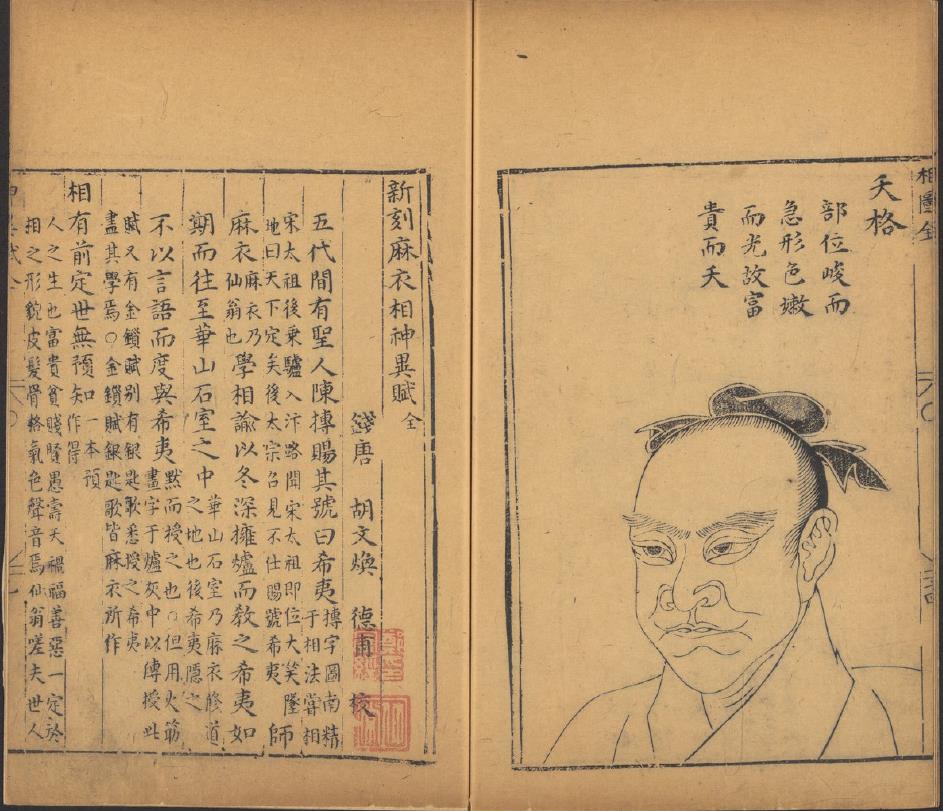 相圖全
夭格
部位峻而
急形色嫩
而光故富
貴而夭
新刻麻衣相神異賦全
錢唐 胡文煥 德甫 校
五代間有聖人陳摶賜其號曰希夷摶字圖南精
于相法嘗相
宋太祖後乘驢入汴略聞宋太祖即位大笑墜
地曰天下定矣後太宗召見不仕賜號希夷師
麻衣麻衣乃
仙翁也學相諭以冬深擁爐而教之希夷如
期而往至華山石室之中華山石室乃麻衣修道
之地也後希夷隱之
不以言語而度與希夷默而授之也○但用火筯
畫字于爐灰中以傳授此
賦又有金鎖賦別有銀匙歌悉授之希夷
盡其學焉○金鎖賦銀匙歌皆麻衣所作
相有前定世無預知一本預
作得
人之生也富貴貧賤賢愚壽夭禍福善惡一定於
相之形貌皮髮骨格氣色聲音焉仙翁嗟夫世人